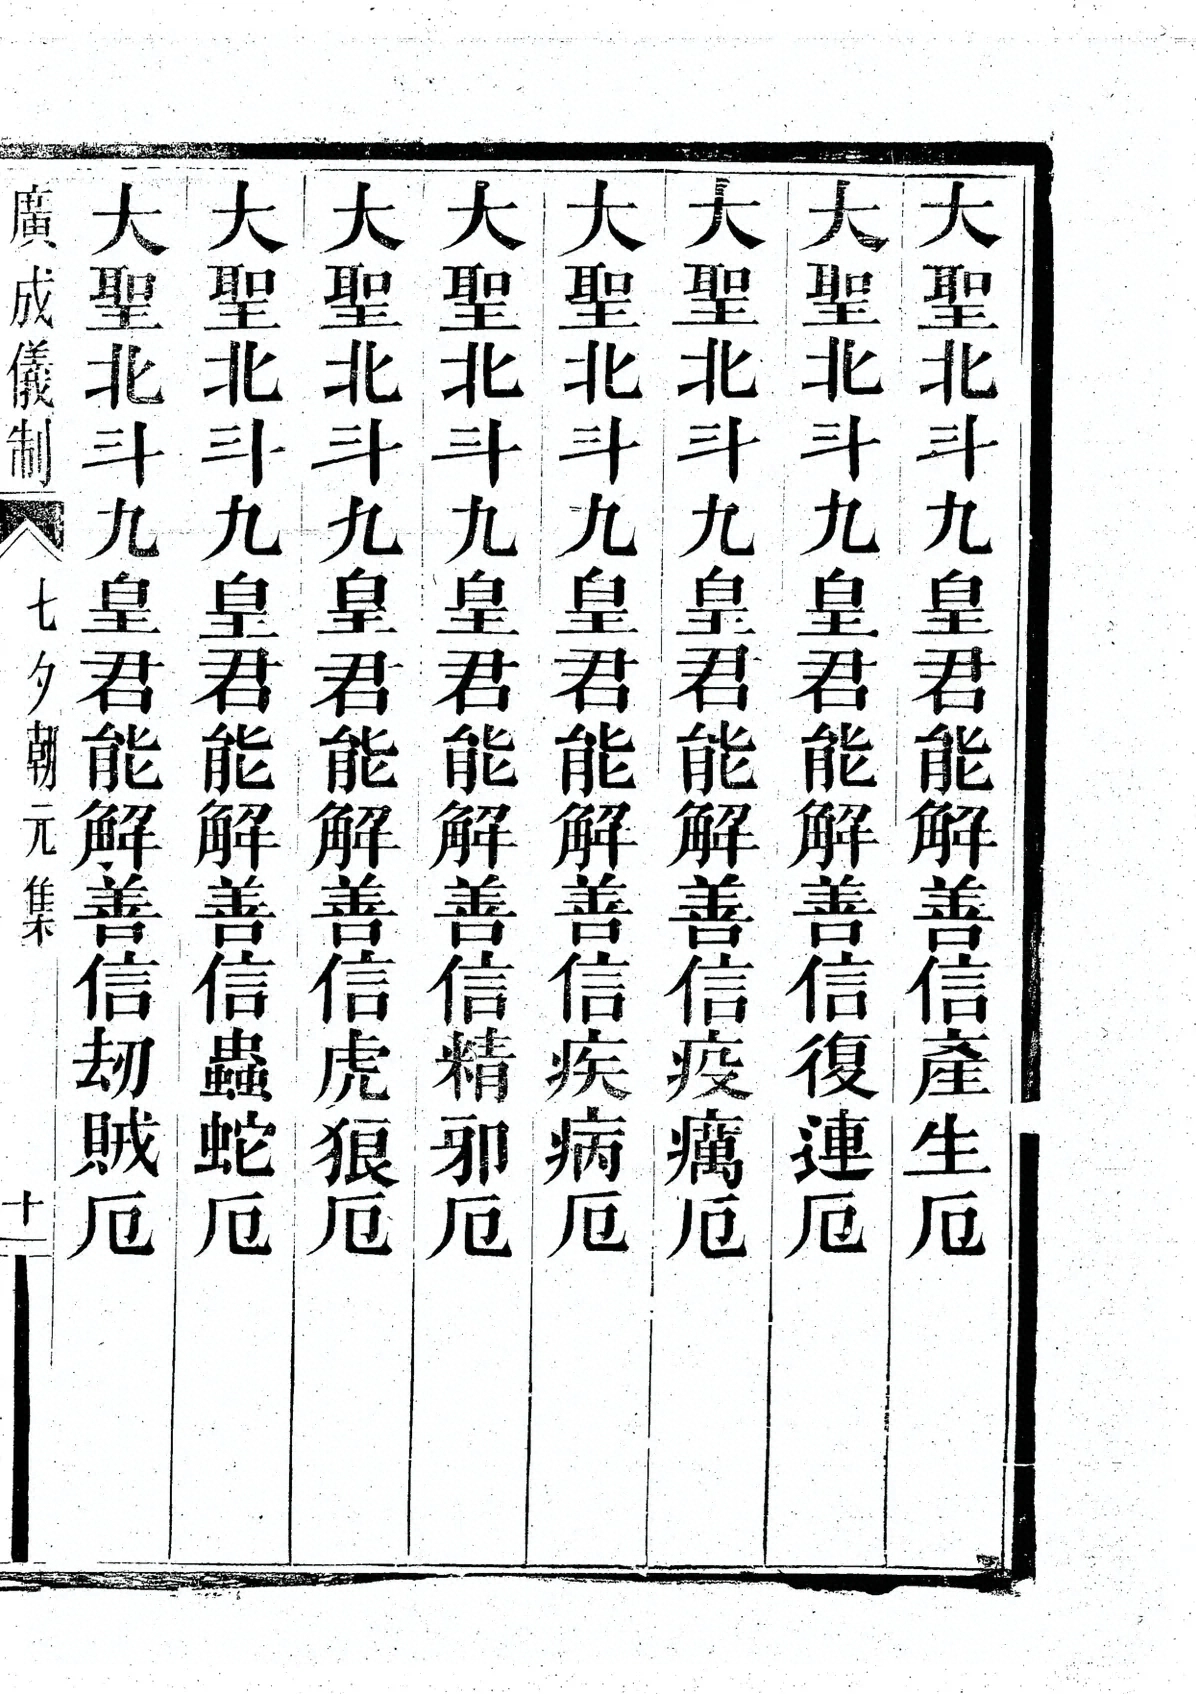 大聖北斗九皇君能解善信產生厄
大聖北斗九皇君能解善信復連厄
大聖北斗九皇君能解善信疫癘厄
大聖北斗九皇君能解善信疾病厄
大聖北斗九皇君能解善信精邪厄
大聖北斗九皇君能解善信虎狼厄
大聖北斗九皇君能解善信蟲蛇厄
大聖北斗九皇君能解善信刼賊厄
廣成儀制 七夕朝元集 十